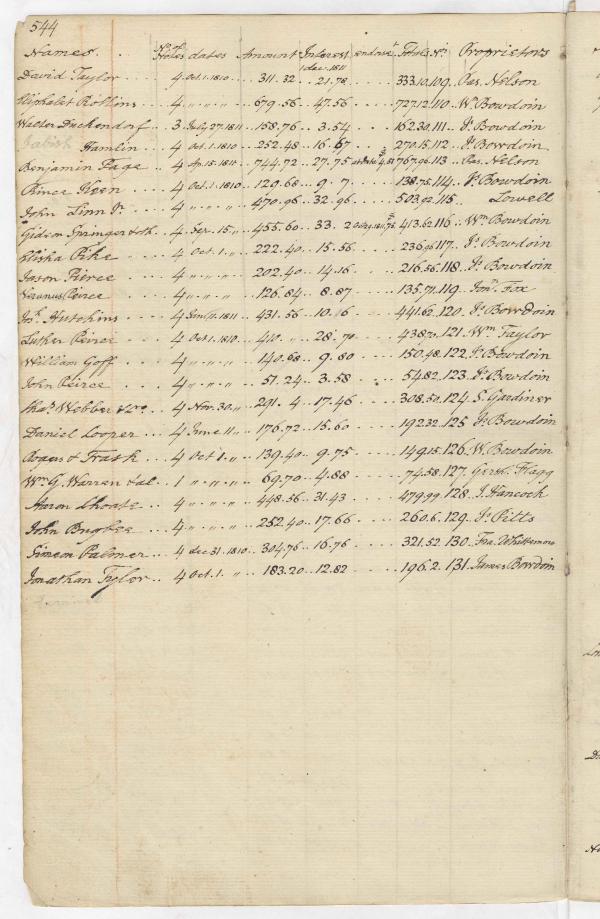 544
Names. . . No. of Notes dates Amount Interest dec. 1811 endorse.t Totals No. Proprietors
David Taylor . . . 4 Oct. 1. 1810 . . 311. 32 . . 21. 78 . . . . . 333.10. 109. Pas. Nelson
Eliphalet Rollins . . 4 " . " . " . . 679.56 . . 47. 56 . . . . 727.12. 110. Wm. Bowdoin
Walter Duckendorf . . 3 July 27. 1811 . 158.76 . . 3. 54 . . . . 162.30. 111. Js. Bowdoin
Hamlin . . 4 Oct. 1. 1810 . . 252.48 . . 16. 67 . . . . 270.15. 112. Js. Bowdoin
Benjamin Page . . . 4 Ap. 15. 1811 . . 744.72 . . 27. 75 4.51 767.96. 113 . . Pas. Nelson
Prince Keen . . . 4 Oct. 1. 1810 . . 129.68 . . 9. 7 . . . . 138.75. 114. Js. Bowdoin
John Linn Jr. . . 4 " . " . " . . 470.96 . . 32. 96 . . . . 503.92. 115. Lowell
Gideon Springer & oth. . 4 Sep. 15. " . . 455.60 . . 33. 2 413.62. 116. Wm. Bowdoin
Elisha Pike . . . 4 Oct. 1. " . . 222.40 . . 15. 56 . . . . 236.96. 117. Js. Bowdoin
Jason Pierce . . . 4 " . " . " . . 202.40 . . 14. 16 . . . . 216.56. 118. Js. Bowdoin
Peirce . . . 4 " . " . " . . 126.84 . . 8. 87 . . . . 135.71. 119. Jon. Fox
Jn. Hutchins . . . 4 1811 . . 431.56 . . 10. 16 . . . . 441.62. 120. Js. Bowdoin
Luther Peirce . . 4 Oct. 1. 1810 . . 410. " . . 28. 70 . . . . 438.70. 121. Wm. Taylor
William Goff . . . 4 " . " . " . . 140.68 . . 9. 80 . . . . 150.48. 122. Js. Bowdoin
John Peirce . . . 4 " . " . " . . 51. 24 . . 3. 58 . . . . 54.82. 123. Js. Bowdoin
Thos. Webber . . 4 Nov. 30. " . . 291. 4 . . 17. 46 . . . . 308.50. 124. S. Gardiner
Daniel Cooper . . . 4 June 11. " . . 176.72 . . 15. 60 . . . . 192.32. 125. Js. Bowdoin
Rogers & Trask . . 4 Oct 1. " . . 139.40 . . 9. 75 . . . . 149.15. 126. W. Bowdoin
Wm. G. Warren & al . . 1 " . " . " . . 69.70 . . 4. 88 . . . . 74.58. 127. Gersh. Flagg
Aaron Choate . . . 4 " . " . " . . 448.56 . . 31. 43 . . . . 479.99. 128. J. Hancock
John Bugbee . . . 4 " . " . " . . 252.40 . . 17. 66 . . . . 260.6. 129. Js. Pitts
Simeon Palmer . . . 4 dec. 31. 1810 . 304.76 . . 16. 76 . . . . 321.52. 130. Fra. Whittemore
Jonathan Tylor . . 4 Oct. 1. " . . 183.20 . . 12. 82 . . . . 196.2. 131. James Bowdoin